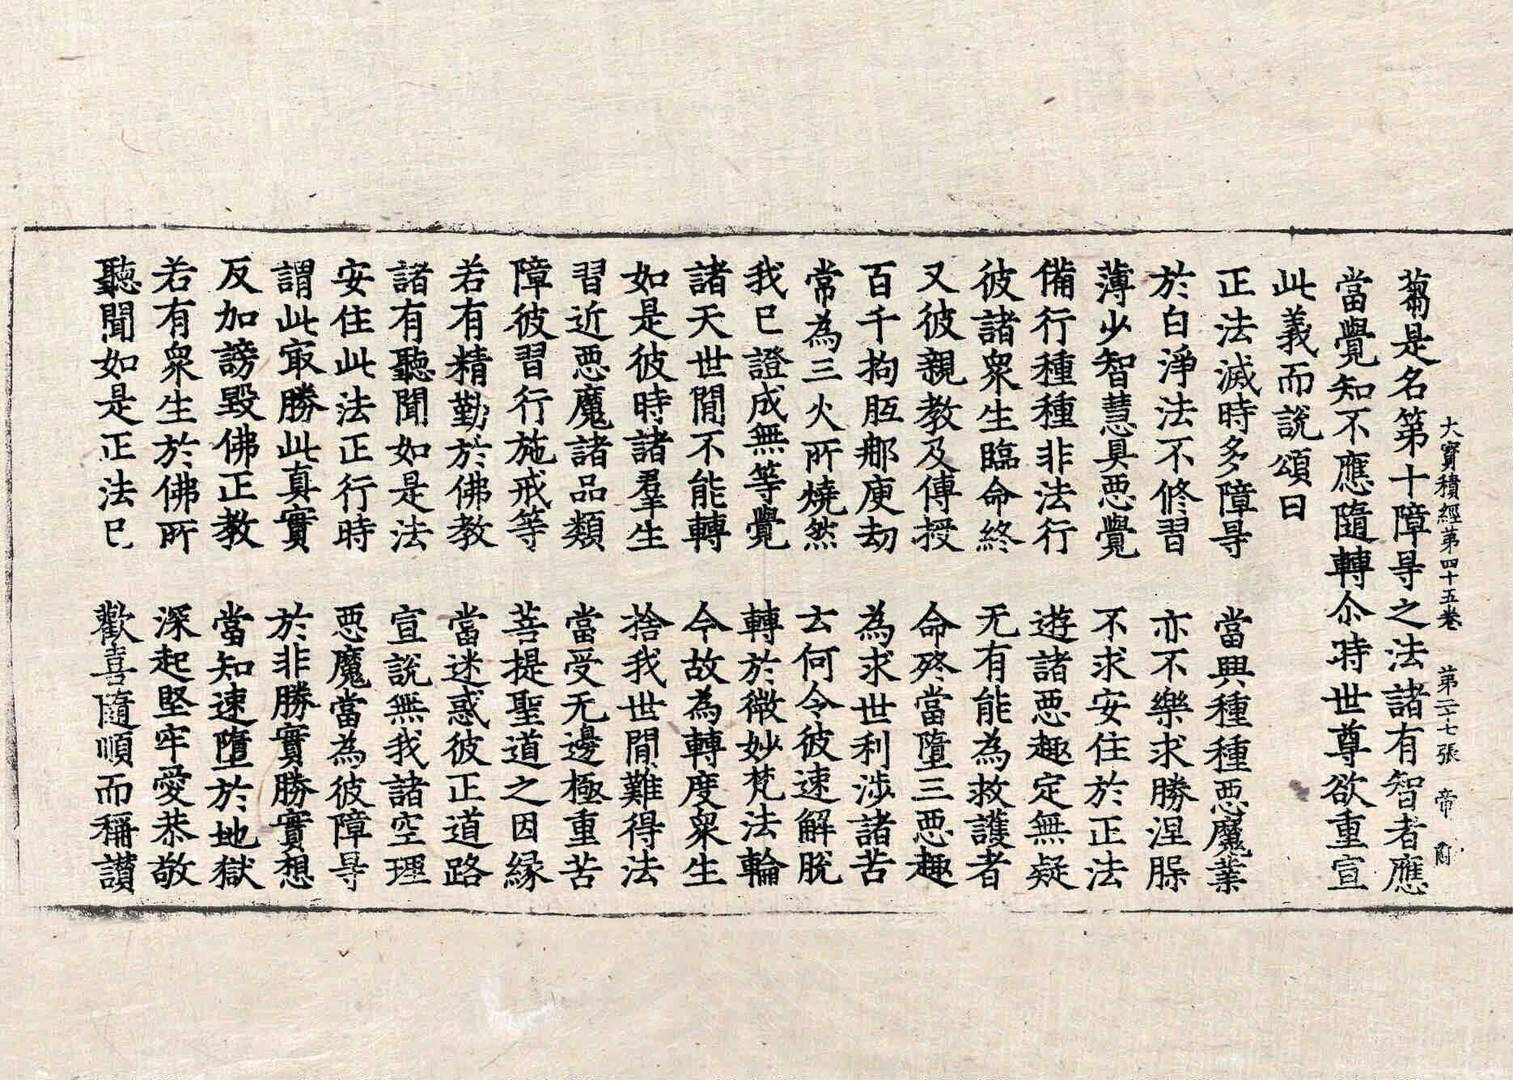 大寶積經苐四十五卷 第二十七張 帝
蒭是名第十障㝵之法諸有智者應
當覺知不應隨轉尒時世尊欲重宣
此義而說頌曰
正法滅時多障㝵 當興種種惡魔業
於白淨法不修習 亦不樂求勝涅槃
薄少智慧具惡覺 不求安住於正法
備行種種非法行 遊諸惡趣定無疑
彼諸衆生臨命終 无有能為救護者
又彼親教及傳授 命終當墮三惡趣
百千拘胝那庾劫 為求世利涉諸苦
常為三火所燒然 云何令彼速解脫
我已證成無等覺 轉於微妙梵法輪
諸天世間不能轉 今故為轉度衆生
如是彼時諸羣生 捨我世間難得法
習近惡魔諸品類 當受无邊極重苦
障彼習行施戒等 菩提聖道之因緣
若有精勤於佛教 當迷惑彼正道路
諸有聽聞如是法 宣說無我諸空理
安住此法正行時 惡魔當為彼障㝵
謂此㝡勝此真實 於非勝實勝實想
反加謗毀佛正教 當知速墮於地獄
若有衆生於佛所 深起堅牢愛恭敬
聽聞如是正法已 歡喜隨順而稱讚